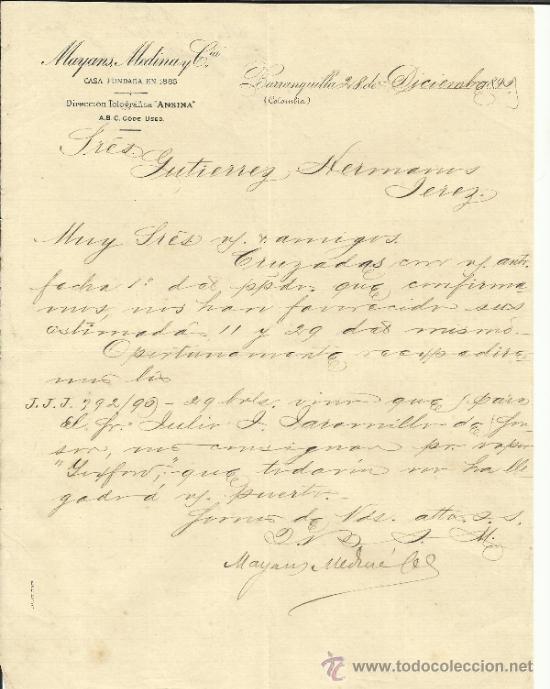 Mayans, Medina y Cía
CASA FUNDADA EN 1885
Dirección Telegráfica "ANSINA"
A.B.C. CODE USED.
Barranquilla 28 de Diciembre 189
(Colombia)
Srés.
Gutierrez Hermanos
Jerez.
Muy Srés n/. y amigos.
Cruzadas con n/. ant.
fecha 1º del ppdo. que confirma
mos, nos han favorecido sus
estimadas 11 y 29 del mismo.
Oportunamente
mos los
J.J.J. 792/95 - 29 bols. vino que para
el Sr. Julio J. Jaramillo de
nos consignan pr. vapor
que todavia no ha lle
gado á n/. puerto.
Somos de Vds. atto. s. s.
Q. B. S. M.
Mayans Medina Ca
todocoleccion
www.todocoleccion.net